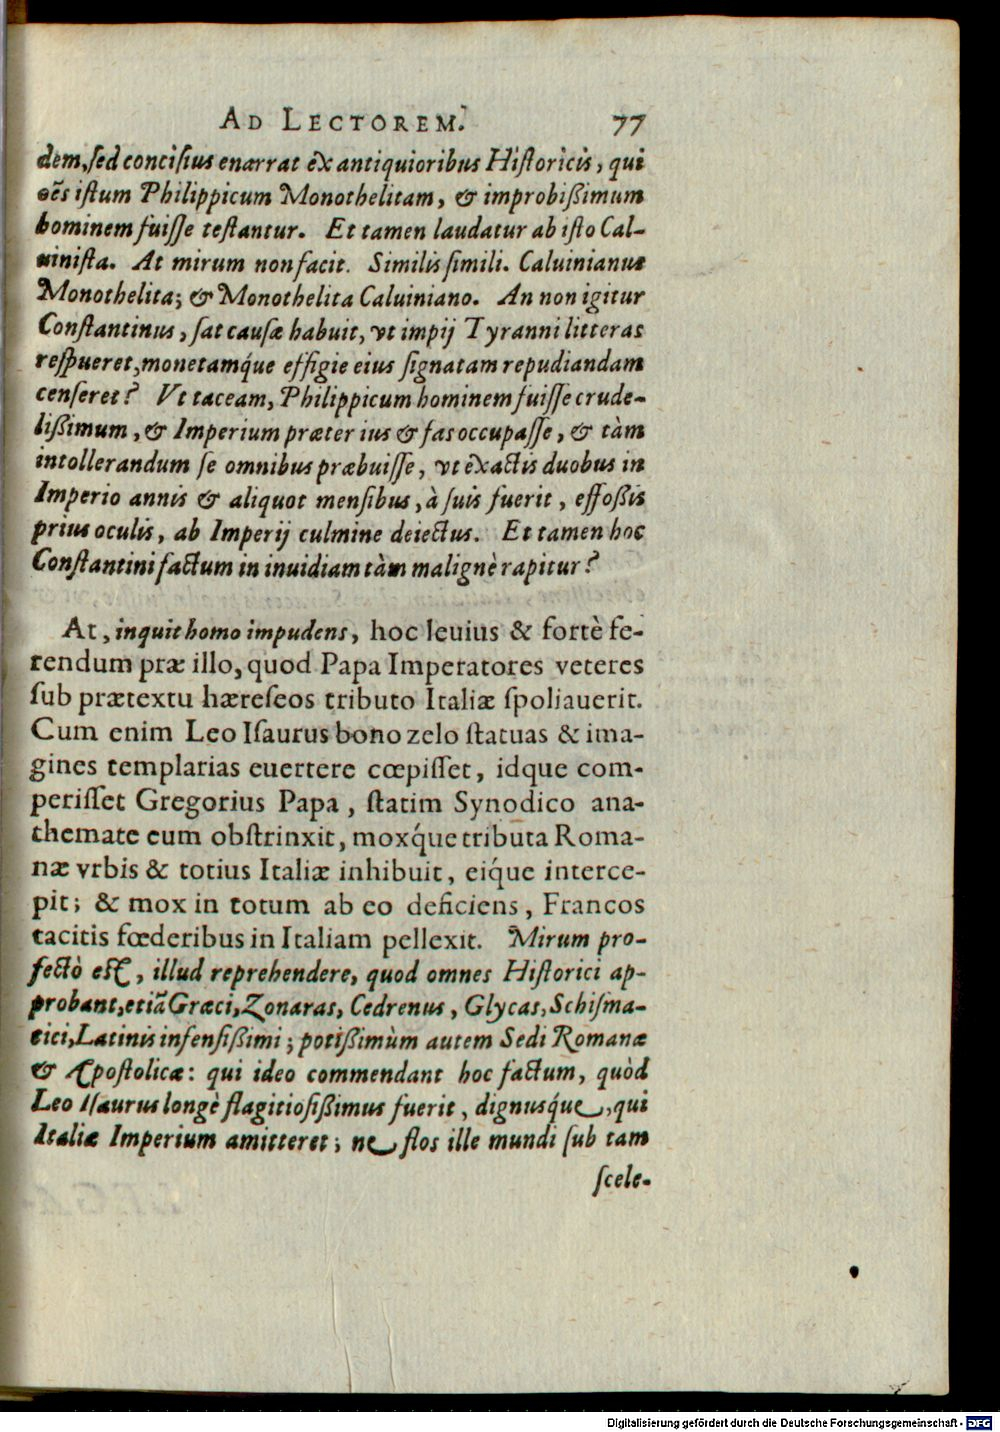 AD LECTOREM. 77
dem, ſed conciſius enarrat ex antiquioribus Hiſtoricis, qui
oẽs iſtum Philippicum Monothelitam, & improbißimum
hominem fuiſſe teſtantur. Et tamen laudatur ab iſto Cal-
uiniſta. At mirum non facit. Similis ſimili. Caluinianus
Monothelita; & Monothelita Caluiniano. An non igitur
Conſtantinus, ſat cauſæ habuit, vt impij Tyranni litteras
reſpueret, monetamq́ue effigie eius ſignatam repudiandam
cenſeret? Vt taceam, Philippicum hominem fuiſſe crude-
lißimum, & Imperium præter ius & fas occupaſſe, & tàm
intollerandum ſe omnibus præbuiſſe, vt exactis duobus in
Imperio annis & aliquot menſibus, à ſuis fuerit, effoßis
prius oculis, ab Imperij culmine deiectus. Et tamen hoc
Conſtantini factum in inuidiam tàm malignè rapitur?
At, inquit homo impudens, hoc leuius & fortè fe-
rendum præ illo, quod Papa Imperatores veteres
ſub prætextu hæreſeos tributo Italiæ ſpoliauerit.
Cum enim Leo Iſaurus bono zelo ſtatuas & ima-
gines templarias euertere cœpiſſet, idque com-
periſſet Gregorius Papa, ſtatim Synodico ana-
themate eum obſtrinxit, moxq́ue tributa Roma-
næ vrbis & totius Italiæ inhibuit, eiq́ue interce-
pit; & mox in totum ab eo deficiens, Francos
tacitis fœderibus in Italiam pellexit. Mirum pro-
fectò eſt, illud reprehendere, quod omnes Hiſtorici ap-
probant, etiã Græci, Zonaras, Cedrenus, Glycas, Schiſma-
tici, Latinis infenſißimi; potißimùm autem Sedi Romanæ
& Apoſtolicæ: qui ideo commendant hoc factum, quòd
Leo Iſaurus longè flagitioſißimus fuerit, dignusq́ue, qui
Italiæ Imperium amitteret; ne flos ille mundi ſub tam
ſcele-
Digitalisierung gefördert durch die Deutsche Forschungsgemeinschaft - DFG